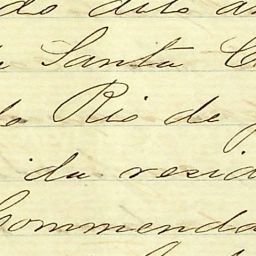 do dito a
Santa C
Rio de
da resid
commenda